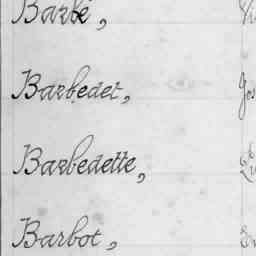 Barbé,
Barbedet,
Barbedette,
Barbot,